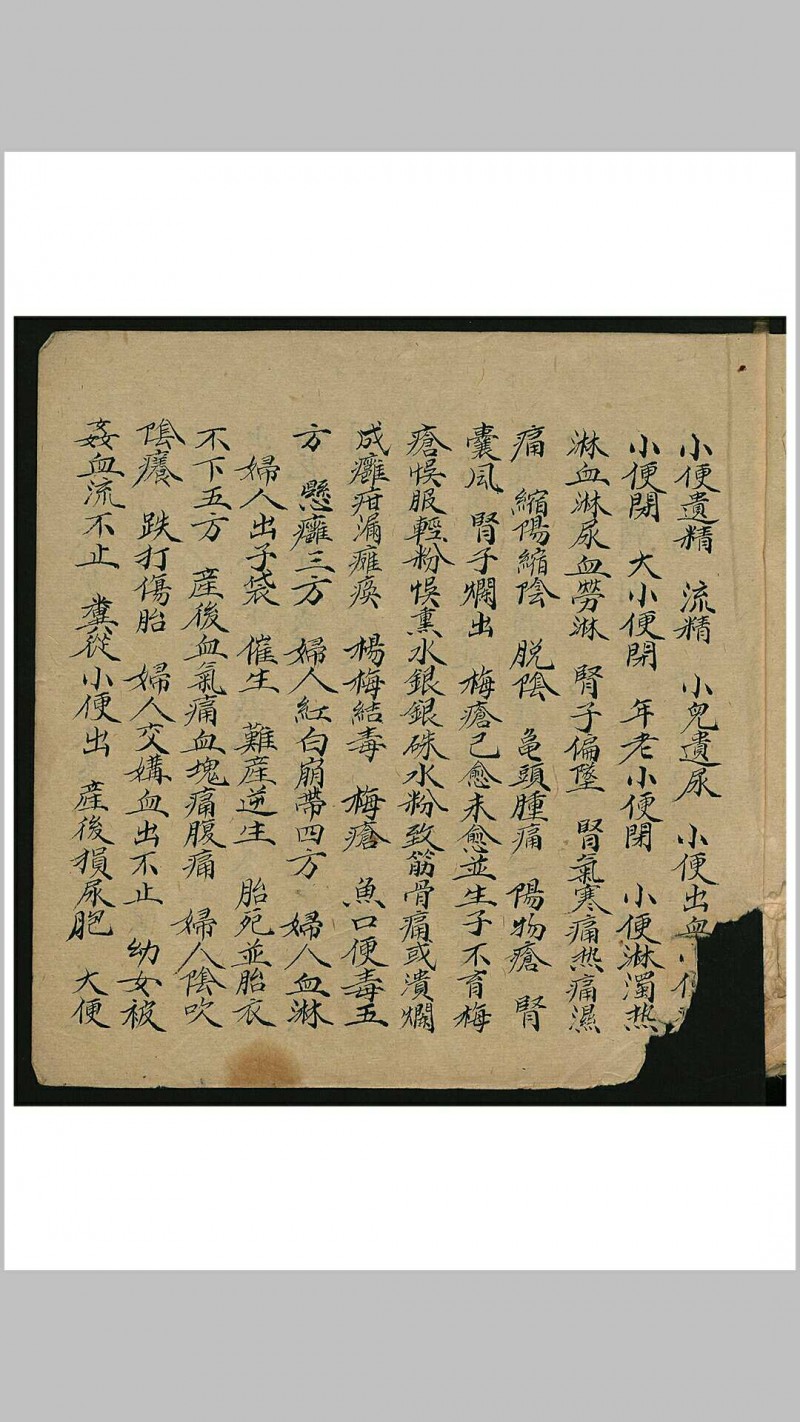 小便遺精　流精　小兒遺尿　小便出血　小便
小便閉　大小便閉　年老小便閉　小便淋濁热
淋血淋尿血勞淋　腎子偏墜　腎氣寒痛热痛濕
痛　縮陽縮陰　脱陰　龜頭腫痛　陽物瘡　腎
囊風　腎子爛出　梅瘡已愈未愈並生子不育梅
瘡悞服輕粉悞熏水銀銀硃水粉致筋骨痛或潰爛
成癰疳漏癱瘓　楊梅結毒　梅瘡　魚口便毒五
方　懸癰三方　婦人紅白崩帶四方　婦人血淋
婦人出子袋　催生　難產逆生　胎死並胎衣
不下五方　產後血氣痛血塊痛腹痛　婦人陰吹
陰癢　跌打傷胎　婦人交媾血出不止　幼女被
姦血流不止　糞從小便出　產後損尿胞　大便